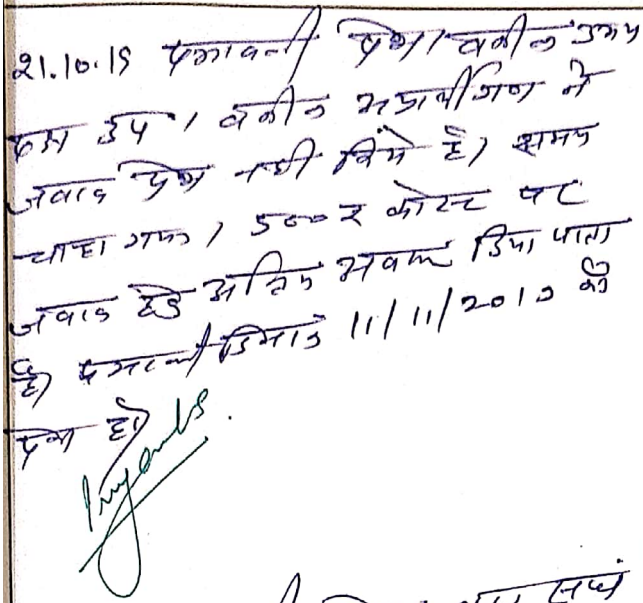 21.10.19 पत्रावली पेश। वकील उभय
पक्ष उप। वकील अप्रार्थीगण ने
जवाब पेश नही किये है। समय
चाहा गया। 500 रू कोस्ट पर
जवाब हेतु अन्तिम अवसर दिया जाता
है। पत्रावली दिनांक 11/11/2019 को
पेश हो